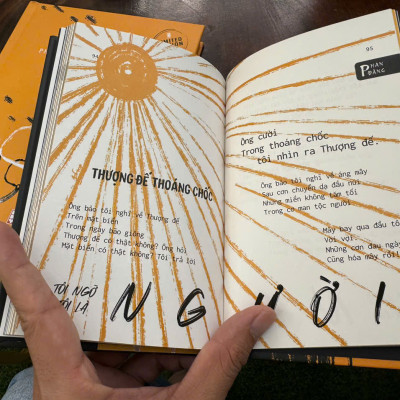 94
THƯỢNG ĐẾ THOÁNG CHỐC
Ông bảo tôi nghĩ về Thượng đế
Trên mặt biển
Trong ngày bão giông
Thượng đế có thật không? Ông hỏi
Mặt biển có thật không? Tôi trả lời
TÔI NGỠ
TÔI LÀ
NGƯỜI
95
PHAN
ĐĂNG
Ông cười
Trong thoáng chốc
tôi nhìn ra Thượng đế.
Ông bảo tôi nghĩ về áng mây
Sau cơn chuyển dạ đầu núi
Những miền không lặt tối
Trong cơ man tộc người
Mây bay qua đầu tôi
Vời vợi
Những cơn đau ngày
Cũng hóa mây rồi!